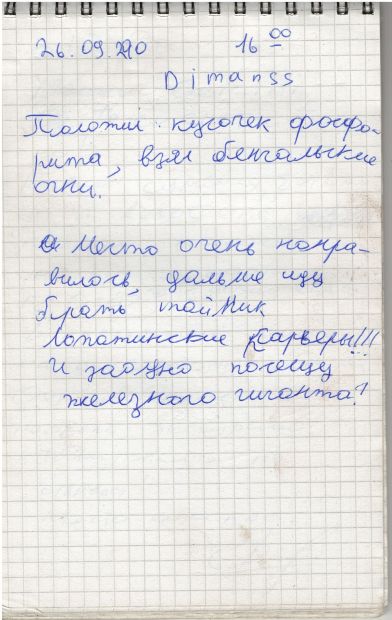 26.09.2010 16 00
Dimanss
Положил кусочек фосфо-
рита, взял бенгальские
огни.
Место очень понра-
вилось, дальше иду
брать тайник
Лопатинские Карьеры!!!
И заодно поищу
железного гиганта?